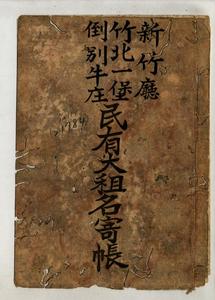 新竹廳
竹北一堡
倒別牛庄
民有大租名寄帳